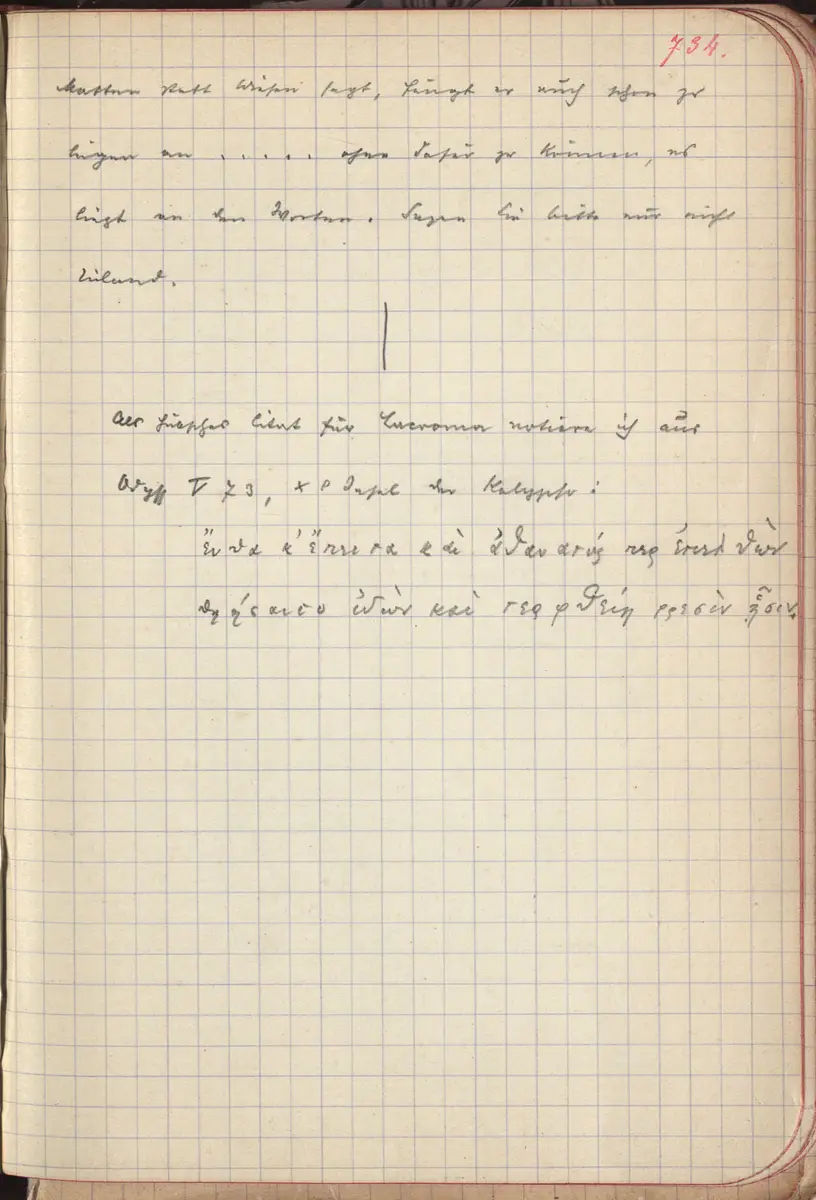 734.
Matten statt Wiesen sagt, fängt er auch schon zu
lügen an . . . . . ohne dafür zu können, es
liegt an den Worten. Sagen Sie bitte nur nicht
Eiland.
Als hübsches Citat für Lacroma notiere ich aus
Odyss V 73, Insel der Kalypso:
ἔνθα κ' ἔπειτα καὶ ἀθάνατός περ ἐπελθὼν
θηήσαιτο ἰδὼν καὶ τερφθείη φρεσὶν ᾗσιν.